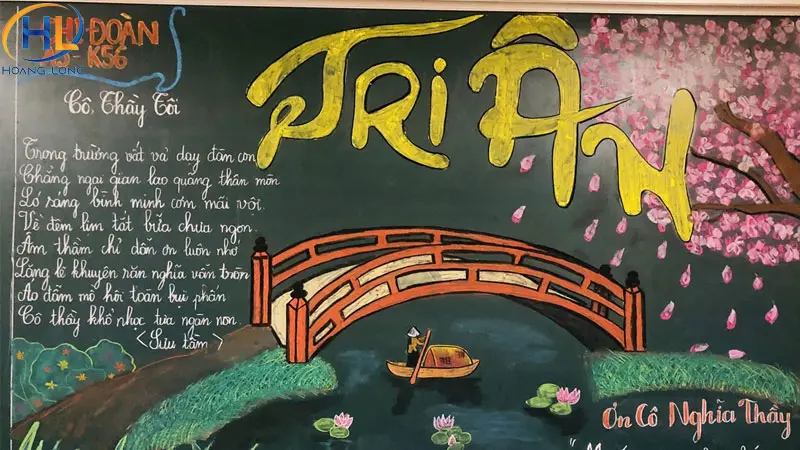 HL
HOANG LONG
ĐOÀN
- K56
TRI ÂN
Cô, Thầy Tôi
Trong trường vất vả dạy đàn con
Chẳng ngại gian lao quẳng thân mòn
Ló sáng bình minh cơm mãi vội
Về đêm lịm tắt bữa chưa ngon
Âm thầm chỉ dẫn ơn luôn nhớ
Lẳng lẽ khuyên răn nghĩa vẫn tròn
Áo đẫm mồ hôi toàn bụi phấn
Cô thầy khổ nhọc tựa ngàn non.
<Sưu tầm>
Ơn Cô Nghĩa Thầy